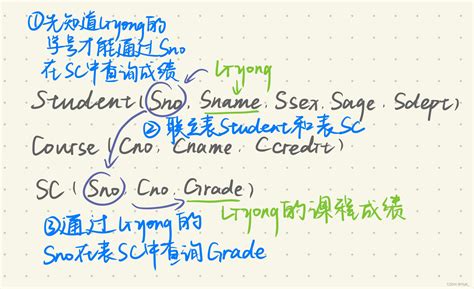 ①先知道Liyong的
学号才能通过Sno
在SC中查询成绩
Liyong
Student (Sno, Sname, Ssex, Sage, Sdept)
②联立表Student和表SC
Course (Cno, Cname, Ccredit)
SC (Sno, Cno, Grade)
Liyong的课程成绩
③通过Liyong的
Sno在表SC中查询Grade